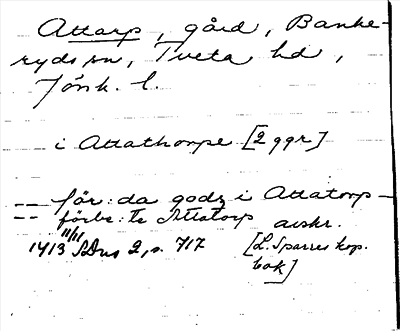 Attarp, gård, Banke-
ryds sn, Tveta hd,
Jönk. l.
i Attathorpe [2 ggr]
-- för:da godz i Attatorp --
-- förbe:te Attatorp avskr.
11/11
1413 SDns 2, s. 717 [L. Sparres kop.
bok]